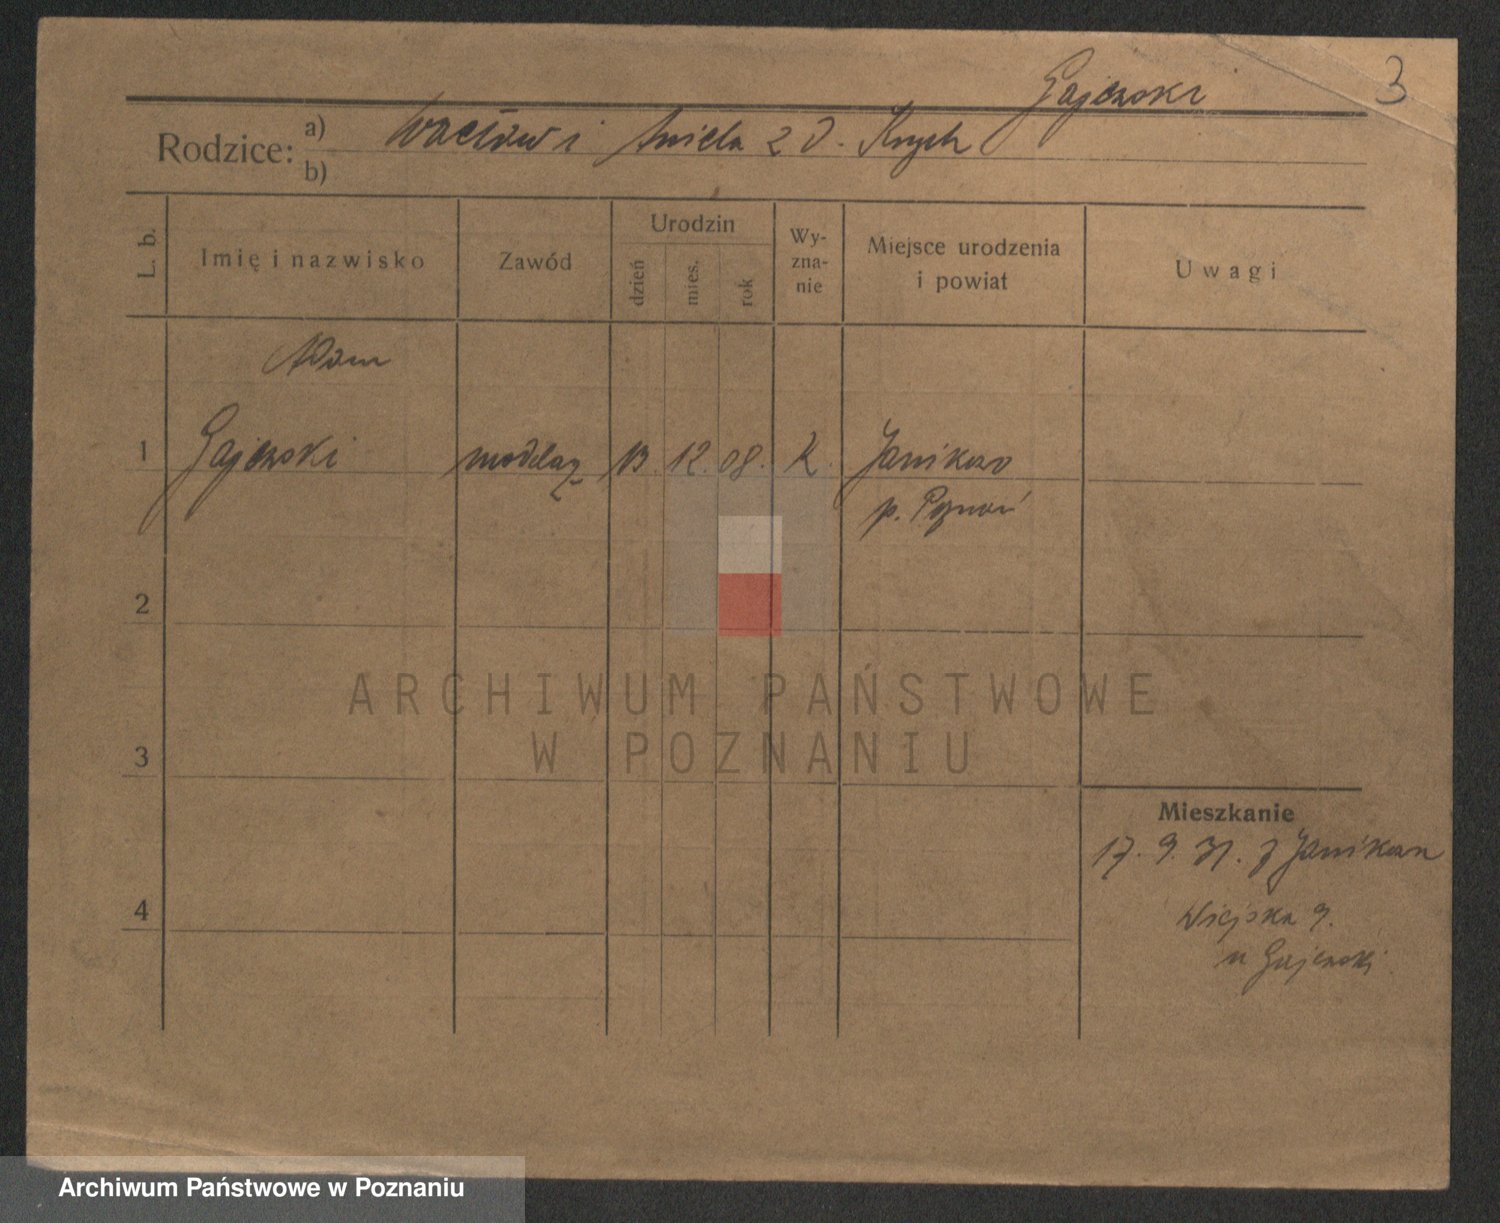 Gajewski 3
Rodzice: a) Wacław i Aniela z d. Krych
b)
L. b. Imię i nazwisko Zawód Urodzin dzień mies. rok Wy-zna-nie Miejsce urodzenia i powiat Uwagi
Adam
1 Gajewski modelarz 13. 12. 08. k. Janikowo
p. Poznań
2
ARCHIWUM PAŃSTWOWE
W POZNANIU
3
Mieszkanie
17. 9. 31. z Janikowa
4
Wiejska 9.
u Gajewski
Archiwum Państwowe w Poznaniu